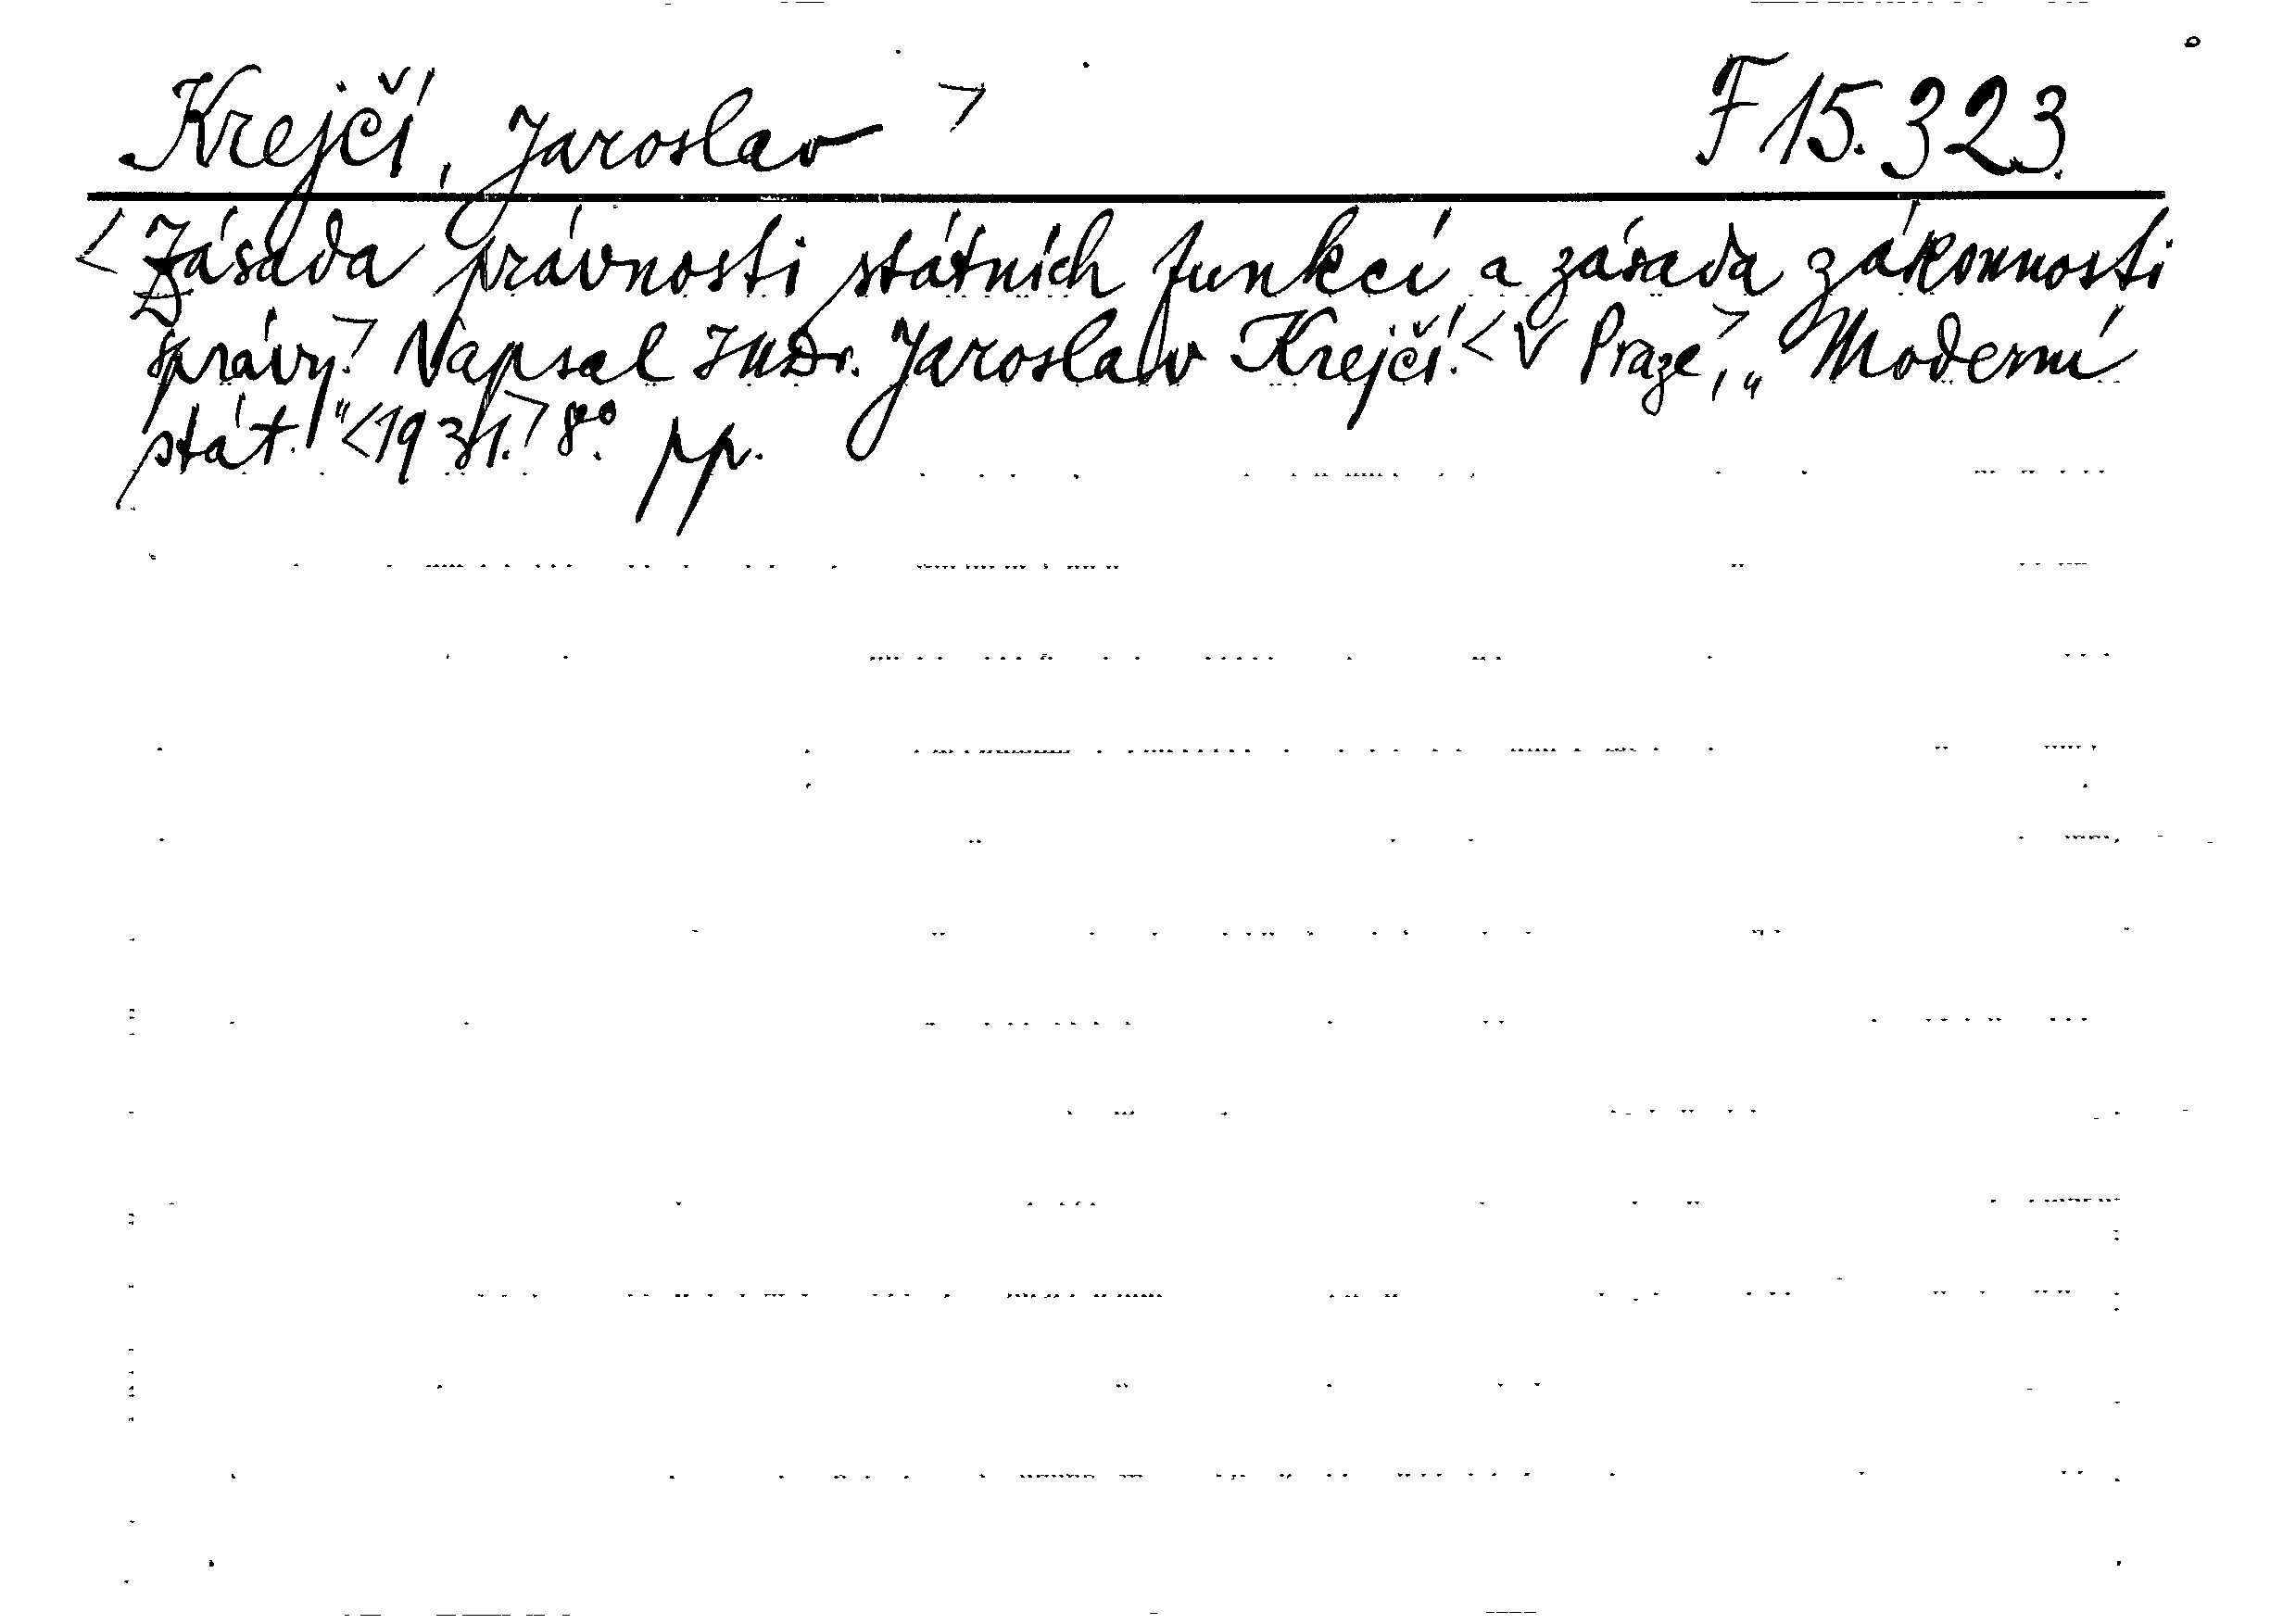 Krejčí, Jaroslav > F 15.323.
< Zásada právnosti státních funkcí a zásada zákonnosti
správy.> Napsal JUDr. Jaroslav Krejčí. < V Praze,> „Moderní
stát." <1931.> 8º. pp.